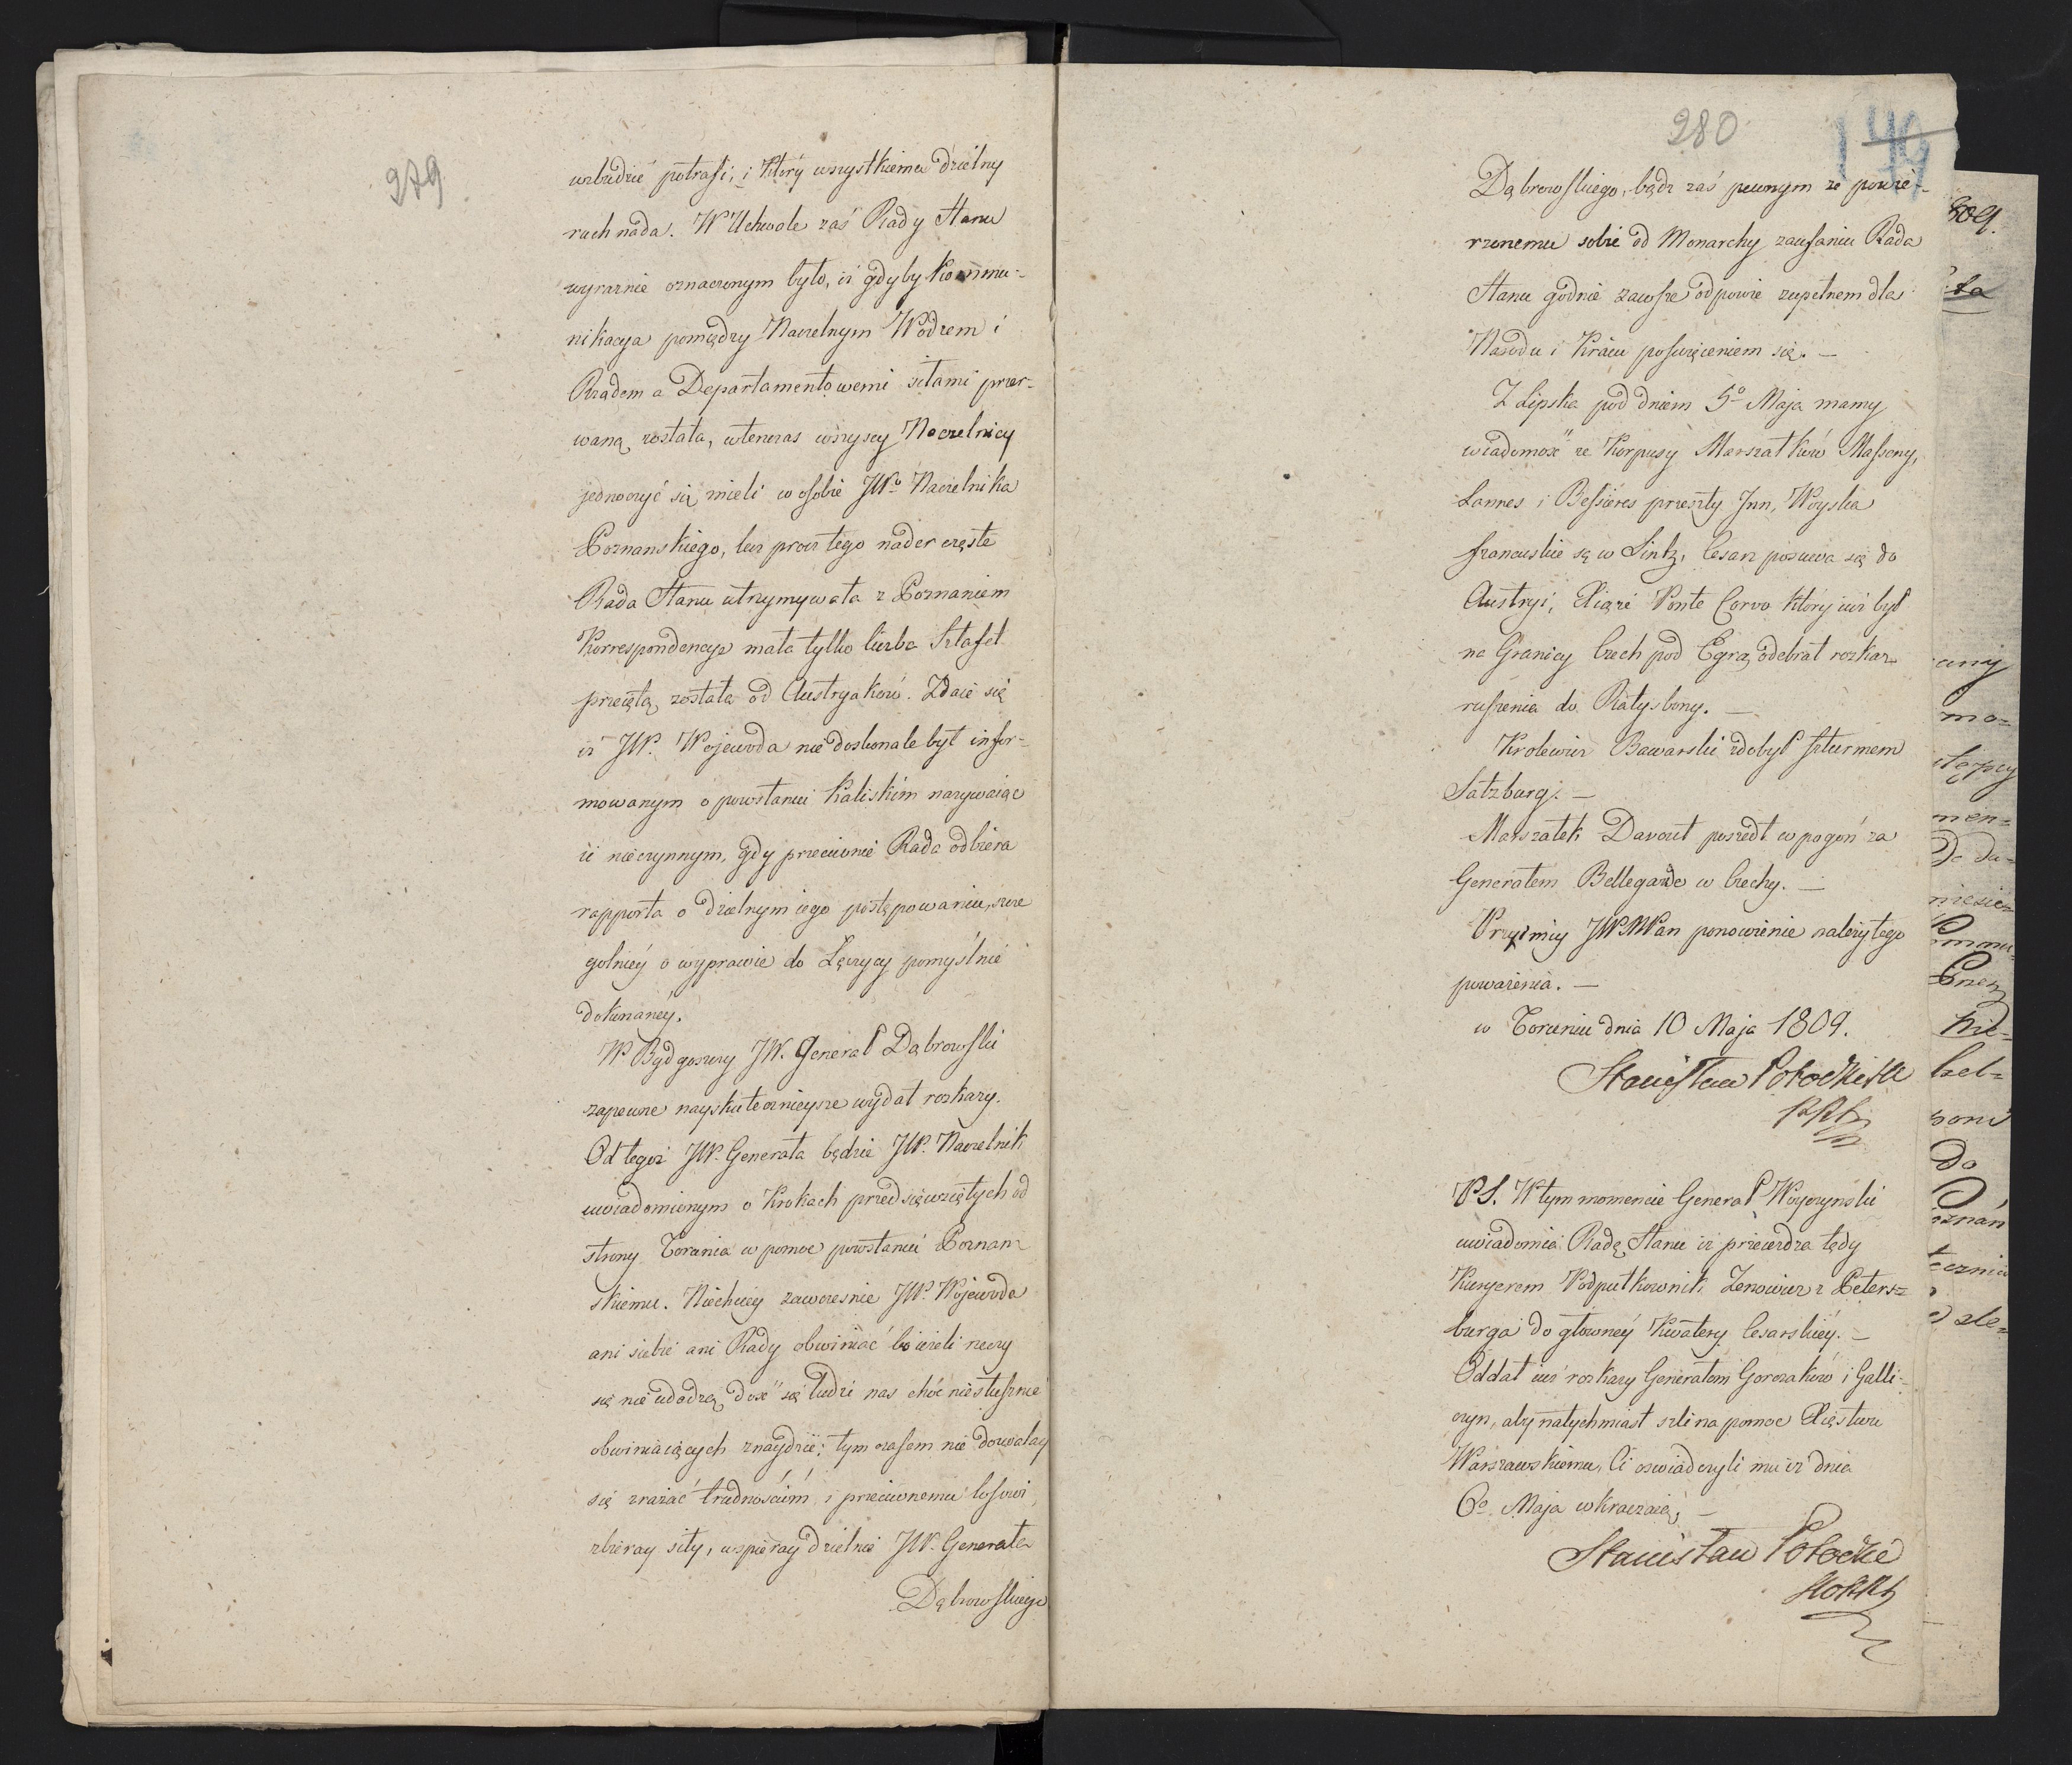 279
wzbudzić potrafi, i który wszystkiemu dzielny
ruch nada. W Uchwale zaś Rady Stanu
wyraznie oznaczonym było, iż gdyby kommu-
nikacya pomiędzy Naczelnym Wodzem i
Rządem a Departamentowemi siłami przer-
waną została, wtenczas wszyscy Naczelnicy
jednoczyć się mieli w osobie JWo Naczelnika
Poznanskiego, lecz procz tego nader częste
Rada Stanu utrzymywała z Poznaniem
Korrespondencye mała tylko liczba Sztafet
przeiętą została od Austryakow. Zdaie się
iż JW. Wojewoda nie doskonale był infor-
mowanym o powstaniu Kaliskim nazywaiąc
ie nieczynnym, gdy przeciwnie Rada odbiera
rapporta o dzielnym iego postępowaniu, szcze
golniey o wyprawie do Łęczycy pomyślnie
dokonaney.
W Bydgoszczy JW. General Dąbrowski
zapewne nayskutecznieysze wydał rozkazy.
Od tegoż JW. Generała będzie JW. Naczelnik
uwiadomionym o Krokach przedsięwziętych od
strony Torunia w pomoc powstaniu Poznan-
skiemu. Niechciey zawczesnie JW. Wojewoda
ani siebie ani Rady obwiniać bo ieżeli rzeczy
się nie udadzą, dosć się ludzi nas choć niesłusznie
obwiniaiących znaydzie; tym czasem nie dozwalay
się zrażać trudnościóm, i przeciwnemu losowi
zbieray siły, wspieray dzielnie JW. Generała
Dąbrowskiego
280
149
Dąbrowskiego, bądz zaś pewnym że powie-
rzonemu sobie od Monarchy zaufaniu Rada
Stanu godnie zawsze odpowie zupełnem dla
Narodu i Kraiu poswięceniem się. —
Z Lipska pod dniem 5o Maja mamy
wiadomosć że Korpusy Marszałków Masseny,
Lannes i Bessieres przeszły Inn, Woyska
francuskie są w Lintz, Cesarz posuwa się do
Austryi, Xiąże Ponte Corvo który iuż był
na Granicy Czech pod Egrą odebrał rozkaz
ruszenia do Ratysbony. —
Krolewicz Bawarski zdobył szturmem
Saltzburg. —
Marszałek Davout poszedł w pogoń za
Generałem Bellegarde w Czechy. —
Przyimiy JWWPan ponowienie należytego
poważenia. —
w Toruniu dnia 10 Maja 1809.
Stanisław Potocki
PS. W tym momencie General Woyczynski
uwiadomia Radę Stanu iż przeieżdża tędy
Kuryerem Podpułkownik Zenowicz z Peters-
burga do głowney Kwatery Cesarskiéy. —
Oddał iuż rozkazy Generałom Gorczaków i Galli-
czyn, aby natychmiast szli na pomoc Xięstwu
Warszawskiemu, Ci oswiadczyli mu iż dnia
6o Maja wkraczaią, —
Stanisław Potocki
809.